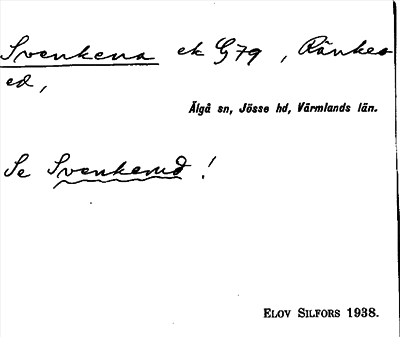 Svenkena ek G79, Ränkes-
ed,
Älgå sn, Jösse hd, Värmlands län.
Se Svenkerud!
ELOV SILFORS 1938.